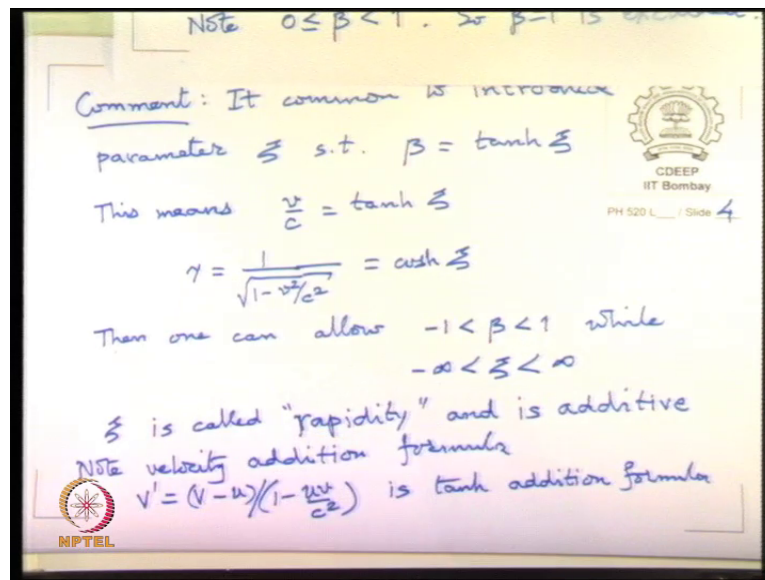 Note 0 ≤ β < 1. So β=1 is excluded.
Comment: It common to introduce
parameter ξ s.t. β = tanh ξ
CDEEP
IIT Bombay
This means v/c = tanh ξ
PH 520 L___ / Slide 4
γ = 1/√(1 - v²/c²) = cosh ξ
Then one can allow -1 < β < 1 while
-∞ < ξ < ∞
ξ is called "rapidity" and is additive
Note velocity addition formula
v' = (v - u)/(1 - uv/c²) is tanh addition formula
NPTEL